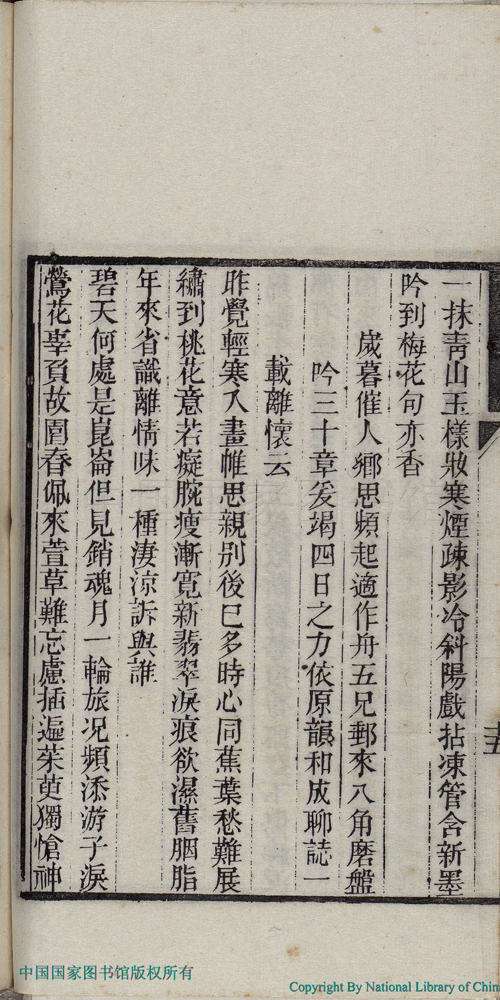 一抹靑山玉樣妝寒煙疎影冷斜陽戲拈凍管含新墨
吟到梅花句亦香
歲暮催人鄉思頻起適作舟五兄郵來八角磨盤
吟三十章爰竭四日之力依原韻和成聊誌一
載離懷云
昨覺輕寒入畫帷思親別後已多時心同蕉葉愁難展
繡到桃花意若癡腕瘦漸寬新翡翠淚痕欲濕舊胭脂
年來省識離情味一種淒涼訴與誰
碧天何處是崑崙但見銷魂月一輪旅况頻添游子淚
鶯花辜負故園春佩來萱草難忘慮插遍茱萸獨愴神
十五
中国国家图书馆版权所有
Copyright By National Library of Chin